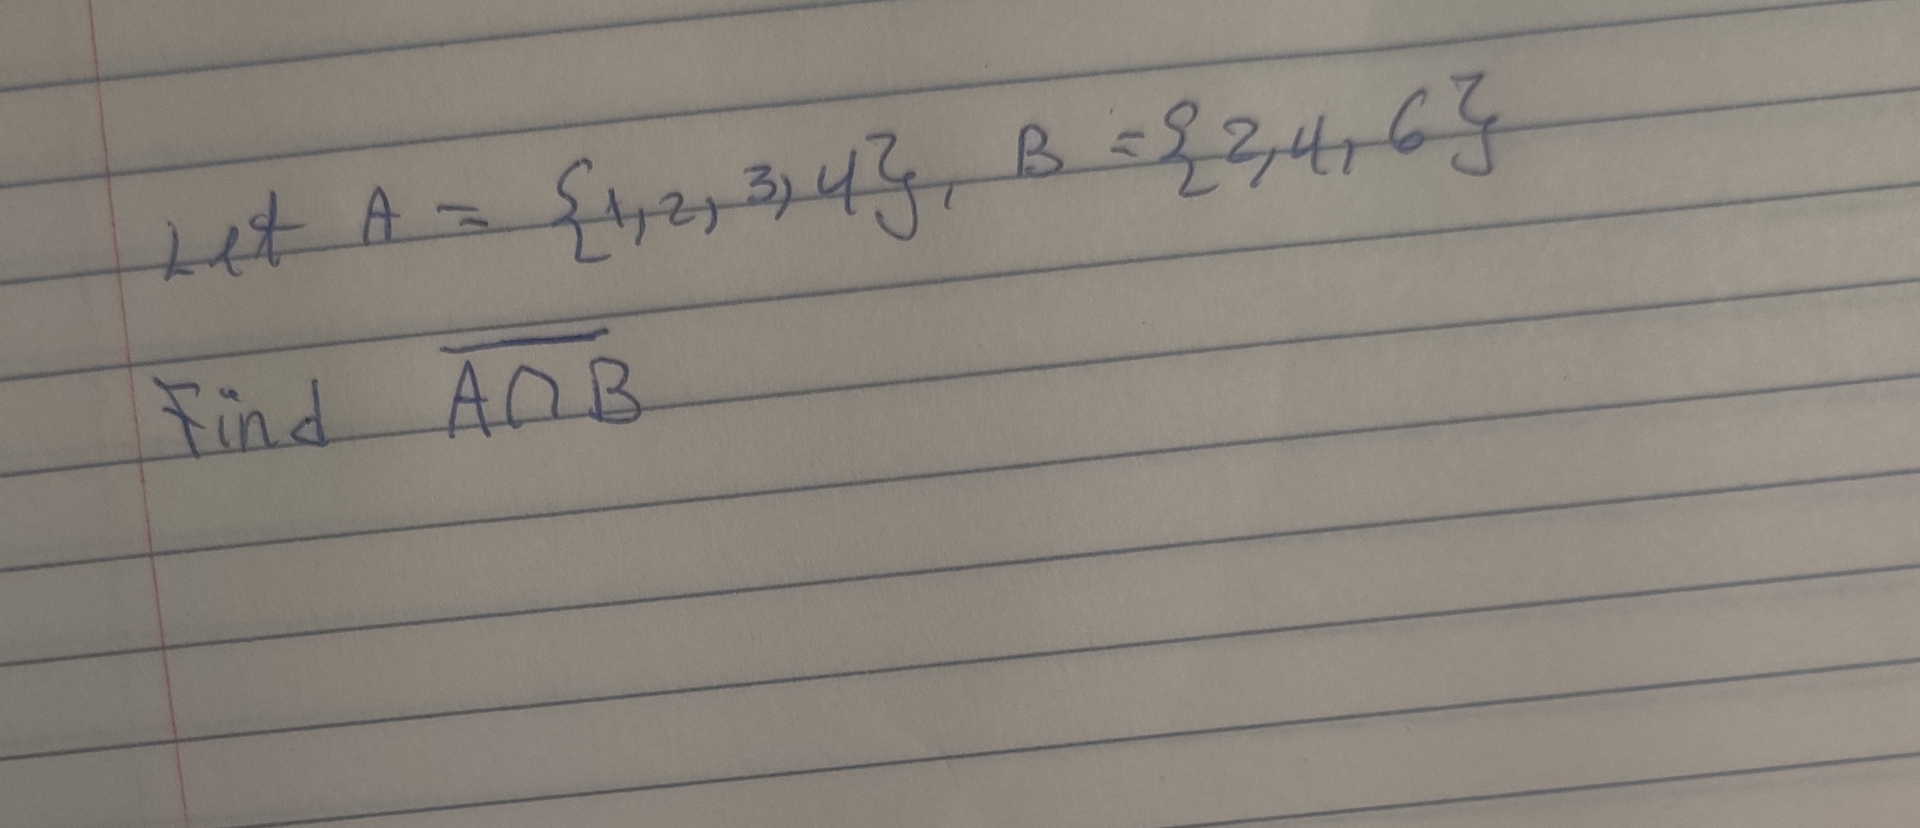 Let A = {1, 2, 3, 4}, B = {2, 4, 6}
Find \overline{A∩B}